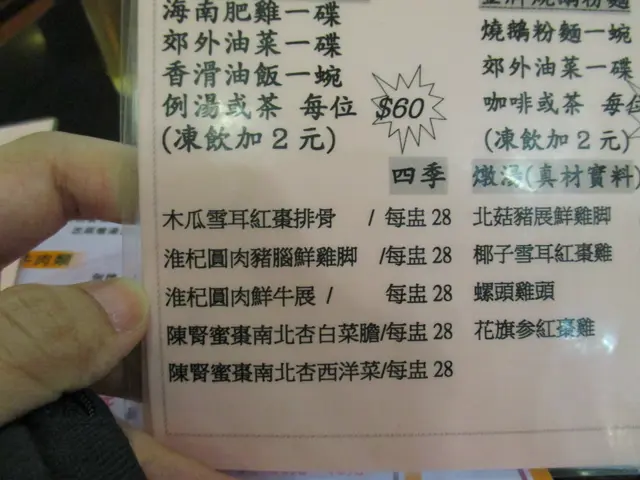 海南肥雞一碟
郊外油菜一碟
香滑油飯一蜿
例湯或茶 每位
(凍飲加2元)
$60
燒鵝粉麵一蜿
郊外油菜一碟
咖啡或茶
(凍飲加2元)
四季 燉湯(真材實料)
木瓜雪耳紅棗排骨 /每盅28
淮杞圓肉豬腦鮮雞脚 /每盅28
淮杞圓肉鮮牛展 / 每盅28
陳腎蜜棗南北杏白菜膽/每盅28
陳腎蜜棗南北杏西洋菜/每盅28
北菇豬展鮮雞脚
椰子雪耳紅棗雞
螺頭雞頭
花旗参紅棗雞